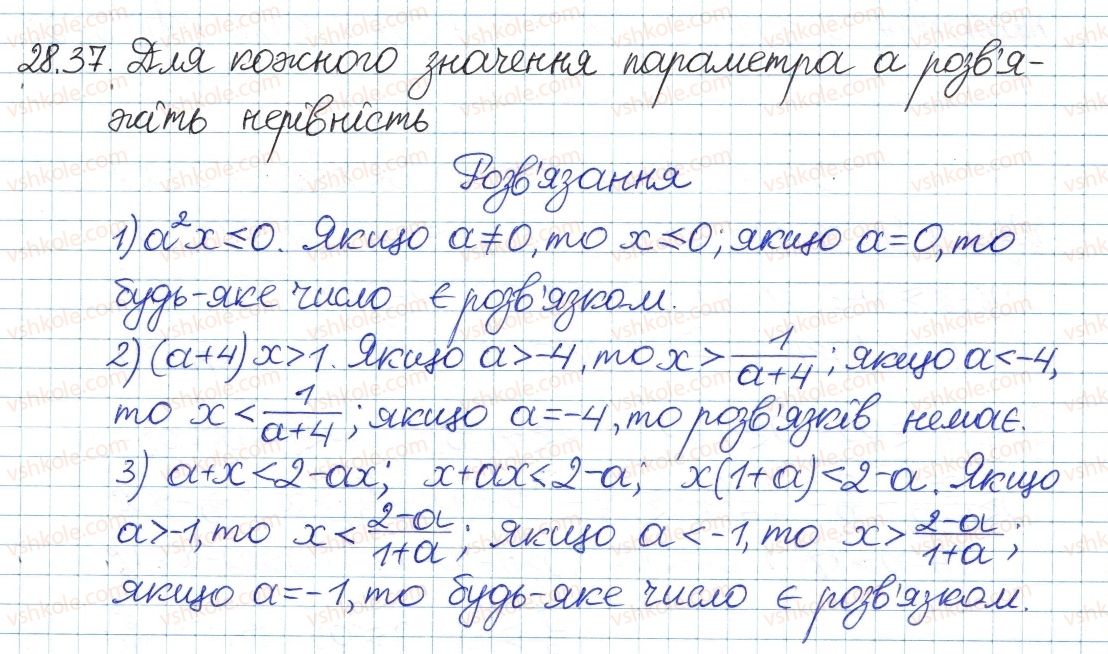 28.37. Для кожного значення параметра a розв'я-
жіть нерівність
Розв'язання
1) a²x≤0. Якщо a≠0, то x≤0; якщо a=0, то
будь-яке число є розв'язком.
2) (a+4)x>1. Якщо a>-4, то x>1/(a+4); якщо a<-4,
то x<1/(a+4); якщо a=-4, то розв'язків немає.
3) a+x<2-ax; x+ax<2-a; x(1+a)<2-a. Якщо
a>-1, то x<(2-a)/(1+a); якщо a<-1, то x>(2-a)/(1+a);
якщо a=-1, то будь-яке число є розв'язком.